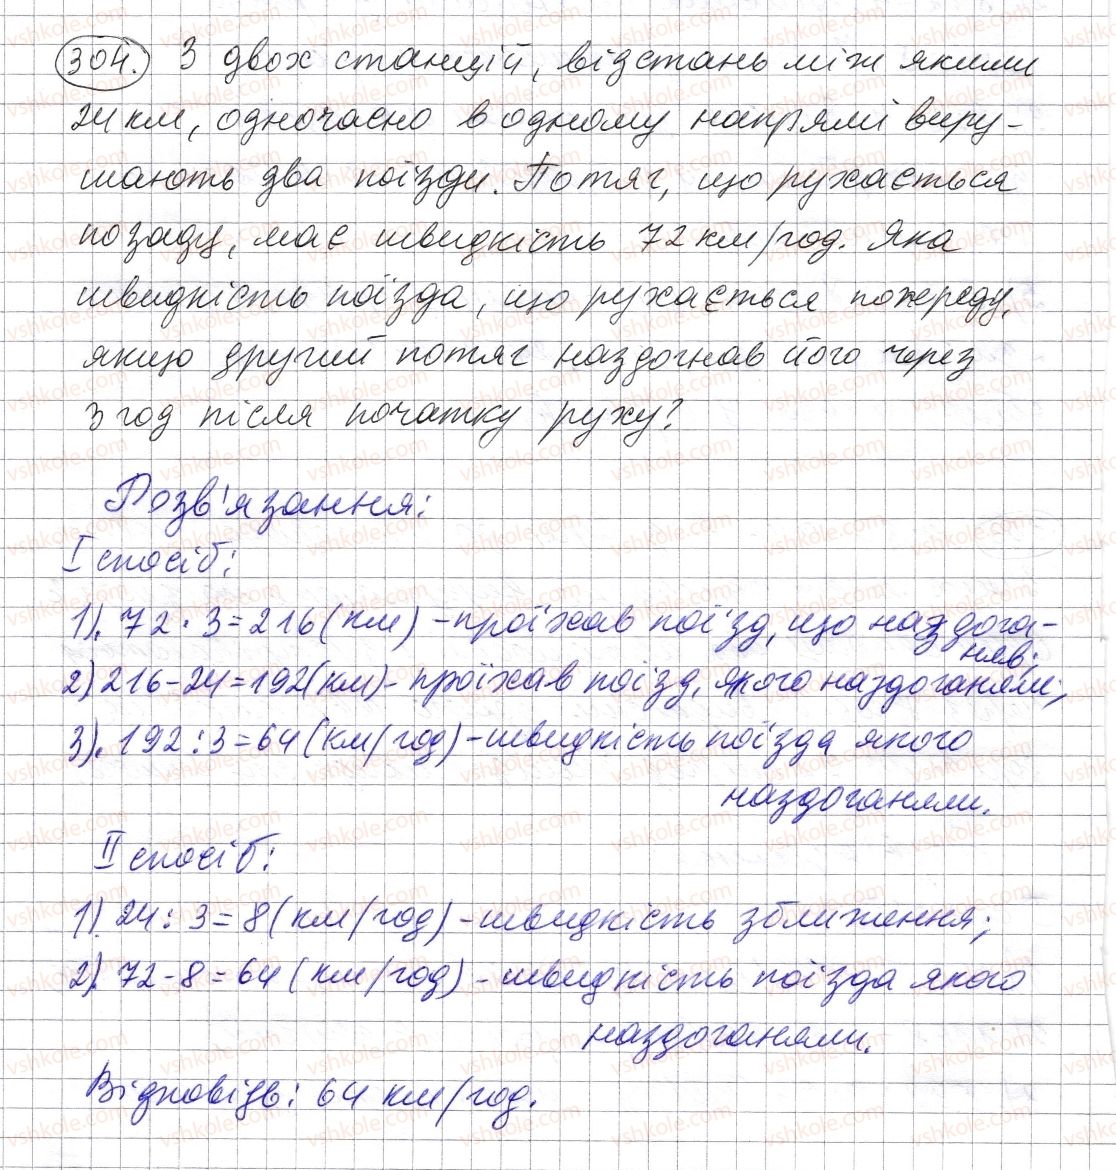 304. З двох станцій, відстань між якими
24 км, одночасно в одному напрямі виру-
шають два поїзди. Потяг, що рухається
позаду, має швидкість 72 км/год. Яка
швидкість поїзда, що рухається попереду,
якщо другий потяг наздогнав його через
3 год після початку руху?
Розв'язання:
І спосіб:
1). 72 · 3 = 216 (км) - проїхав поїзд, що наздога-
няв;
2) 216 - 24 = 192 (км) - проїхав поїзд, якого наздоганяли;
3). 192 : 3 = 64 (км/год) - швидкість поїзда якого
наздоганяли.
ІІ спосіб:
1). 24 : 3 = 8 (км/год) - швидкість зближення;
2). 72 - 8 = 64 (км/год) - швидкість поїзда якого
наздоганяли.
Відповідь: 64 км/год.